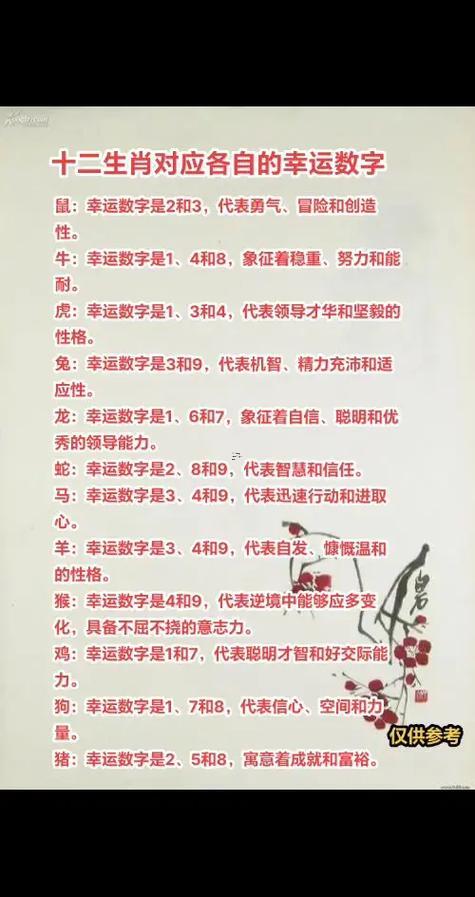 十二生肖对应各自的幸运数字
鼠：幸运数字是2和3，代表勇气、冒险和创造
性。
牛：幸运数字是1、4和8，象征着稳重、努力和能
耐。
虎：幸运数字是1、3和4，代表领导才华和坚毅的
性格。
兔：幸运数字是3和9，代表机智、精力充沛和适
应性。
龙：幸运数字是1、6和7，象征着自信、聪明和优
秀的领导能力。
蛇：幸运数字是2、8和9，代表智慧和信任。
马：幸运数字是3、4和9，代表迅速行动和进取
心。
羊：幸运数字是3、4和9，代表自发、慷慨温和
的性格。
猴：幸运数字是4和9，代表逆境中能够应多变
化，具备不屈不挠的意志力。
鸡：幸运数字是1和7，代表聪明才智和好交际能
力。
狗：幸运数字是1、7和8，代表信心、空间和力
量。
仅供参考
猪：幸运数字是2、5和8，寓意着成就和富裕。